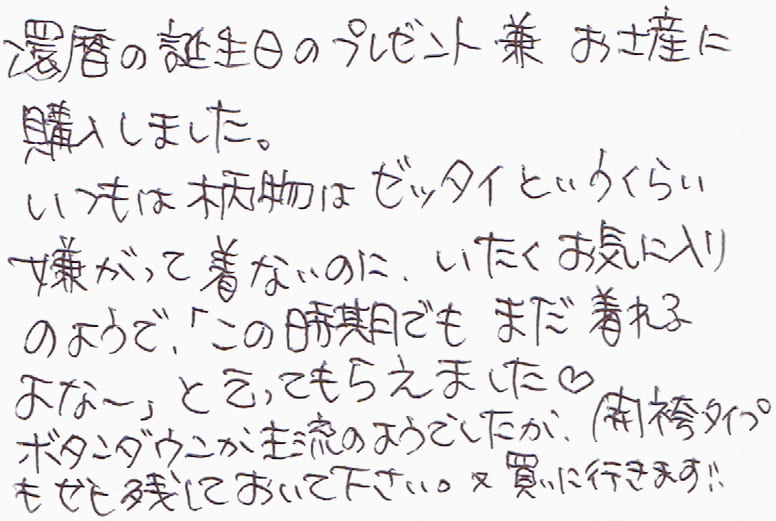 還暦の誕生日のプレゼント兼 お土産に
購入しました。
いつもは柄物はゼッタイというくらい
嫌がって着ないのに、いたくお気に入り
のようで、「この時期でも まだ着れる
よな〜」と言ってもらえました♡
ボタンダウンが主流のようでしたが、開袴タイプ
もぜひ残しておいて下さい。又買いに行きます!!